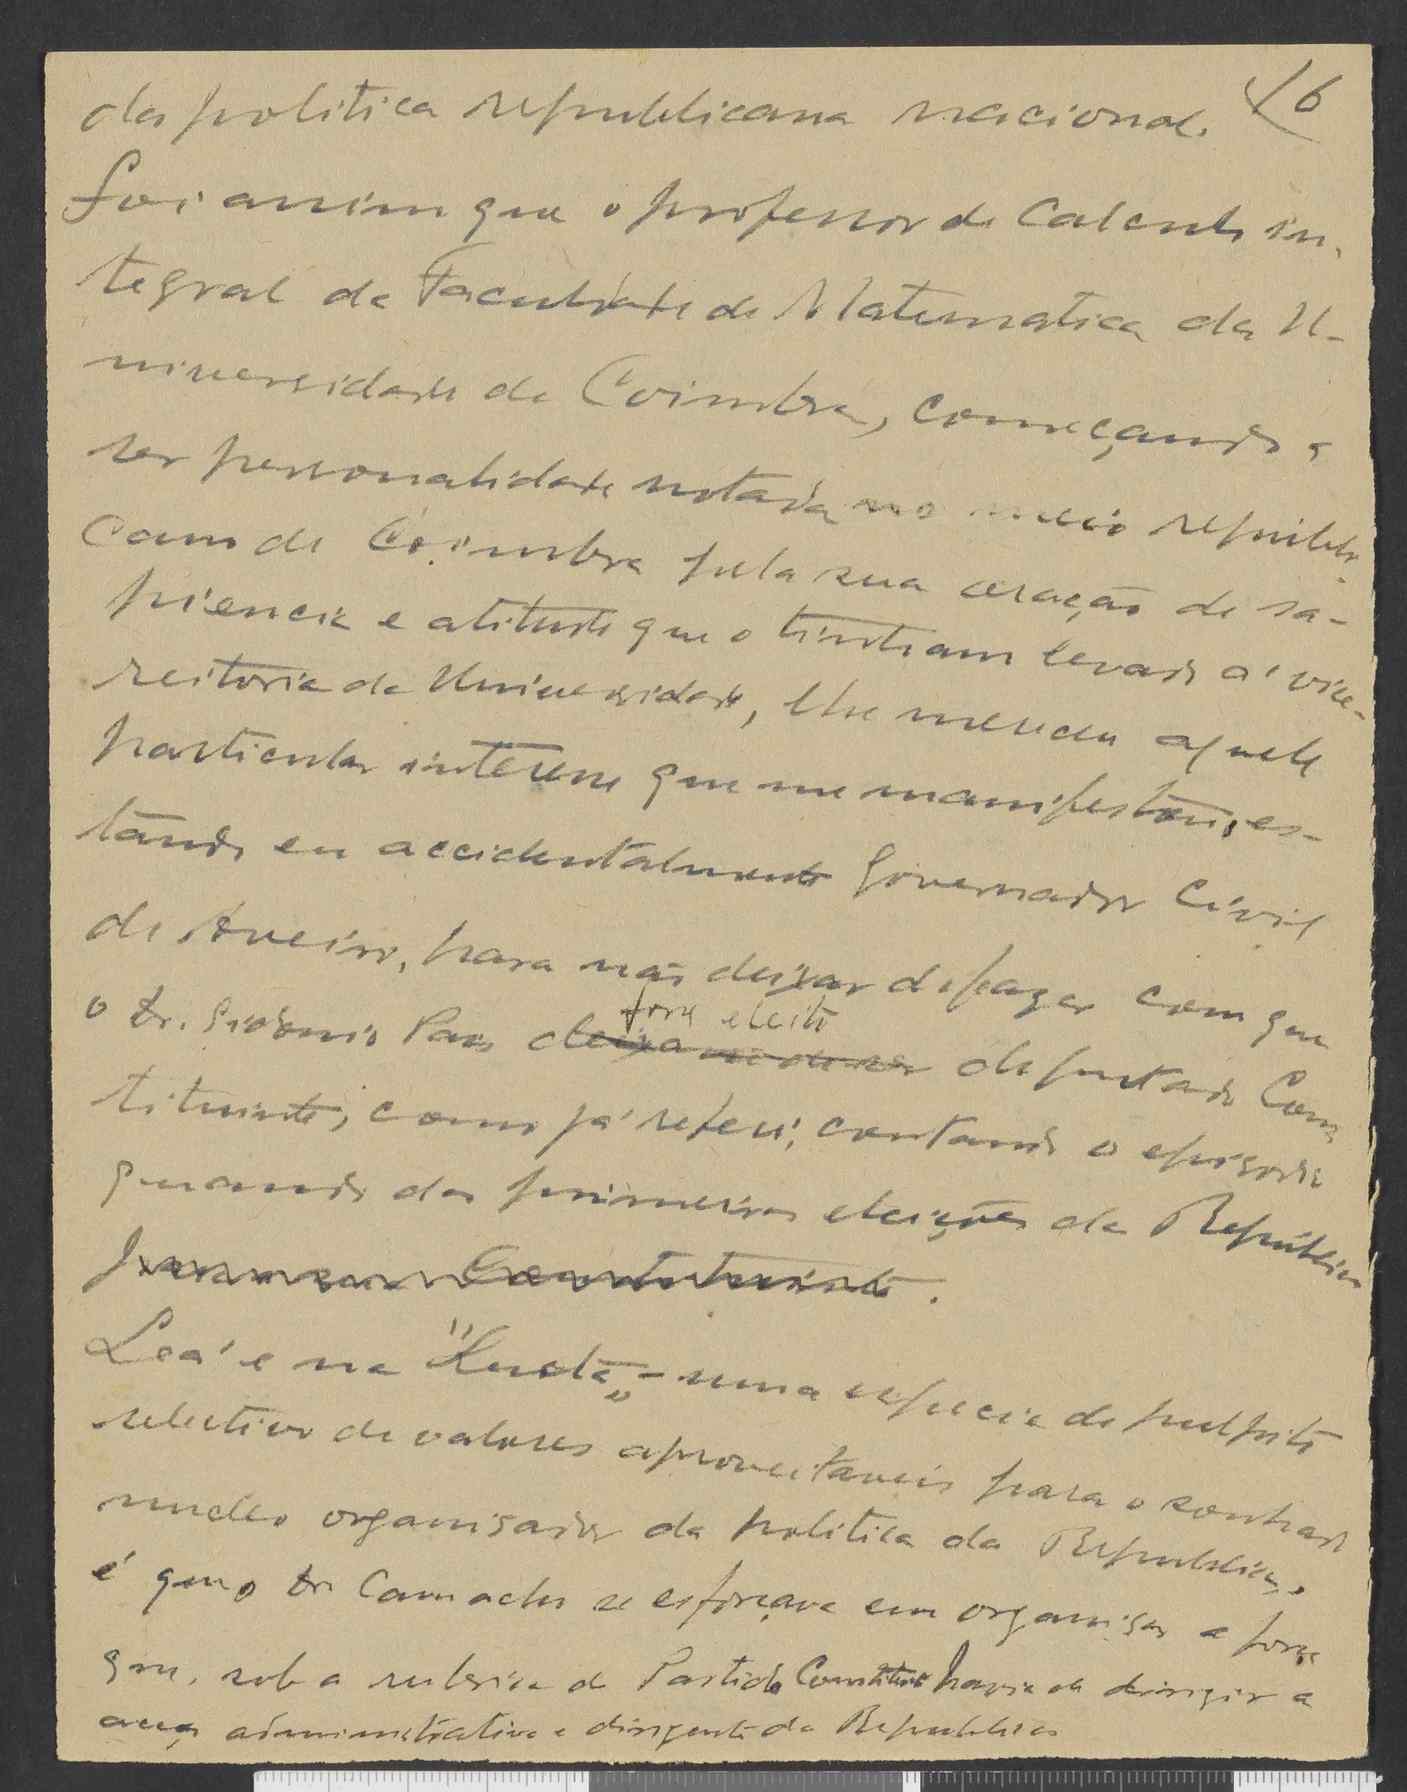 16
da politica republicana nacional.
Foi assim que o professor de Calculo in-
tegral da Faculdade de Matematica da U-
niversidade de Coimbra, começando a
ser personalidade notada no meio republi-
cano de Coimbra pela sua de sa-
piencia e atitude que o tinham levado á vice-
reitoria da Universidade, lhe mereceu aquele
particular interesse que me manifestou, es-
tando eu accidentalmente Governador Civil
de Aveiro, para não deixar de fazer com que
o Dr. Sidonio Paes fora eleito deputado Cons
tituinte, como já referi, contando o episodio
quando das primeiras eleições da Republica
Constituinte.
Lá e na "Lucta„ - uma especie de pulpito
selectivo de valores aproveitaveis para o sonhado
nucleo organisador da politica da Republica,
é que o Dr Camacho se esforçava em organisar a força
que, sob a rubrica de Partido havia de dirigir a
administrativa e dirigente da Republica